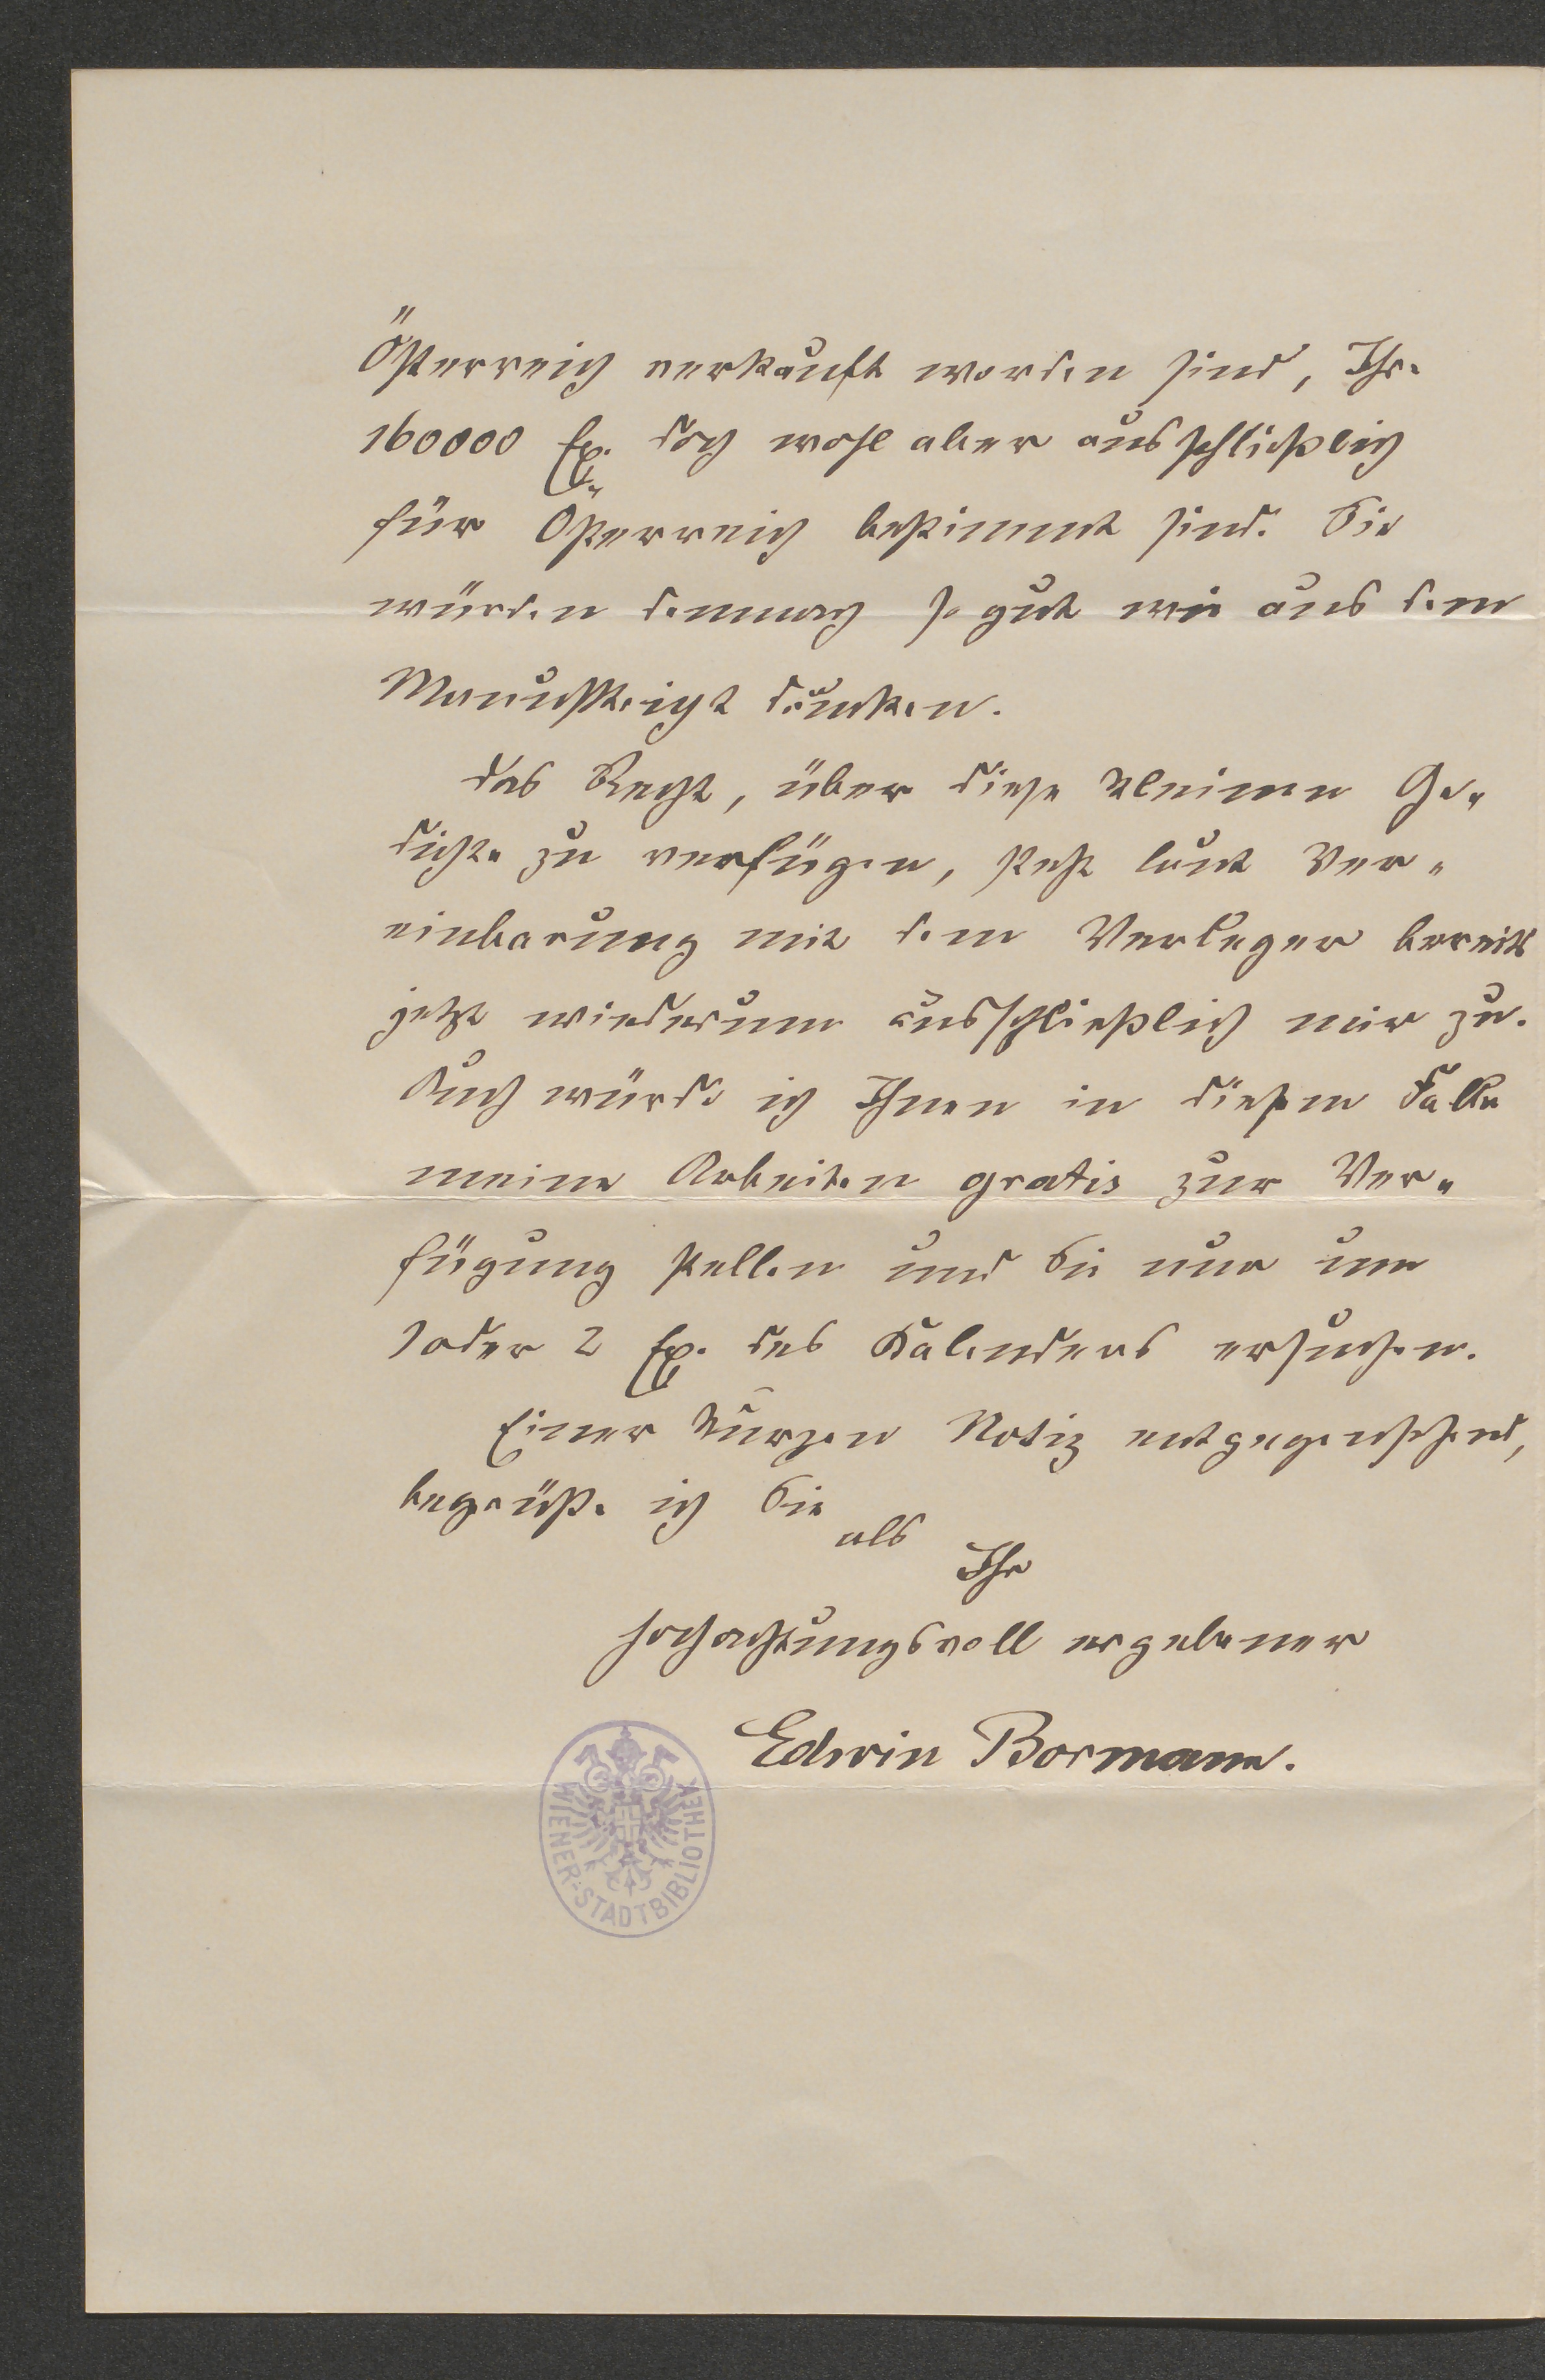 Österreich verkauft worden sind, Ihre
160000 Ex. doch wohl aber ausschließlich
für Österreich bestimmt sind. Sie
würden demnach so gut wie aus dem
Manuskript drucken.
Das Recht, über diese kleinen Ge-
dichte zu verfügen, steht laut Ver-
einbarung mit dem Verleger bereits
jetzt wiederum ausschließlich mir zu.
Auch würde ich Ihnen in diesem Falle
meine Arbeiten gratis zur Ver-
fügung stellen und Sie nur um
1 oder 2 Ex. des Kalenders ersuchen.
Einer kurzen Notiz entgegensehend,
begrüße ich Sie
als
Ihr
hochachtungsvoll ergebener
Edwin Bormann.
WIENER-STADTBIBLIOTHEK